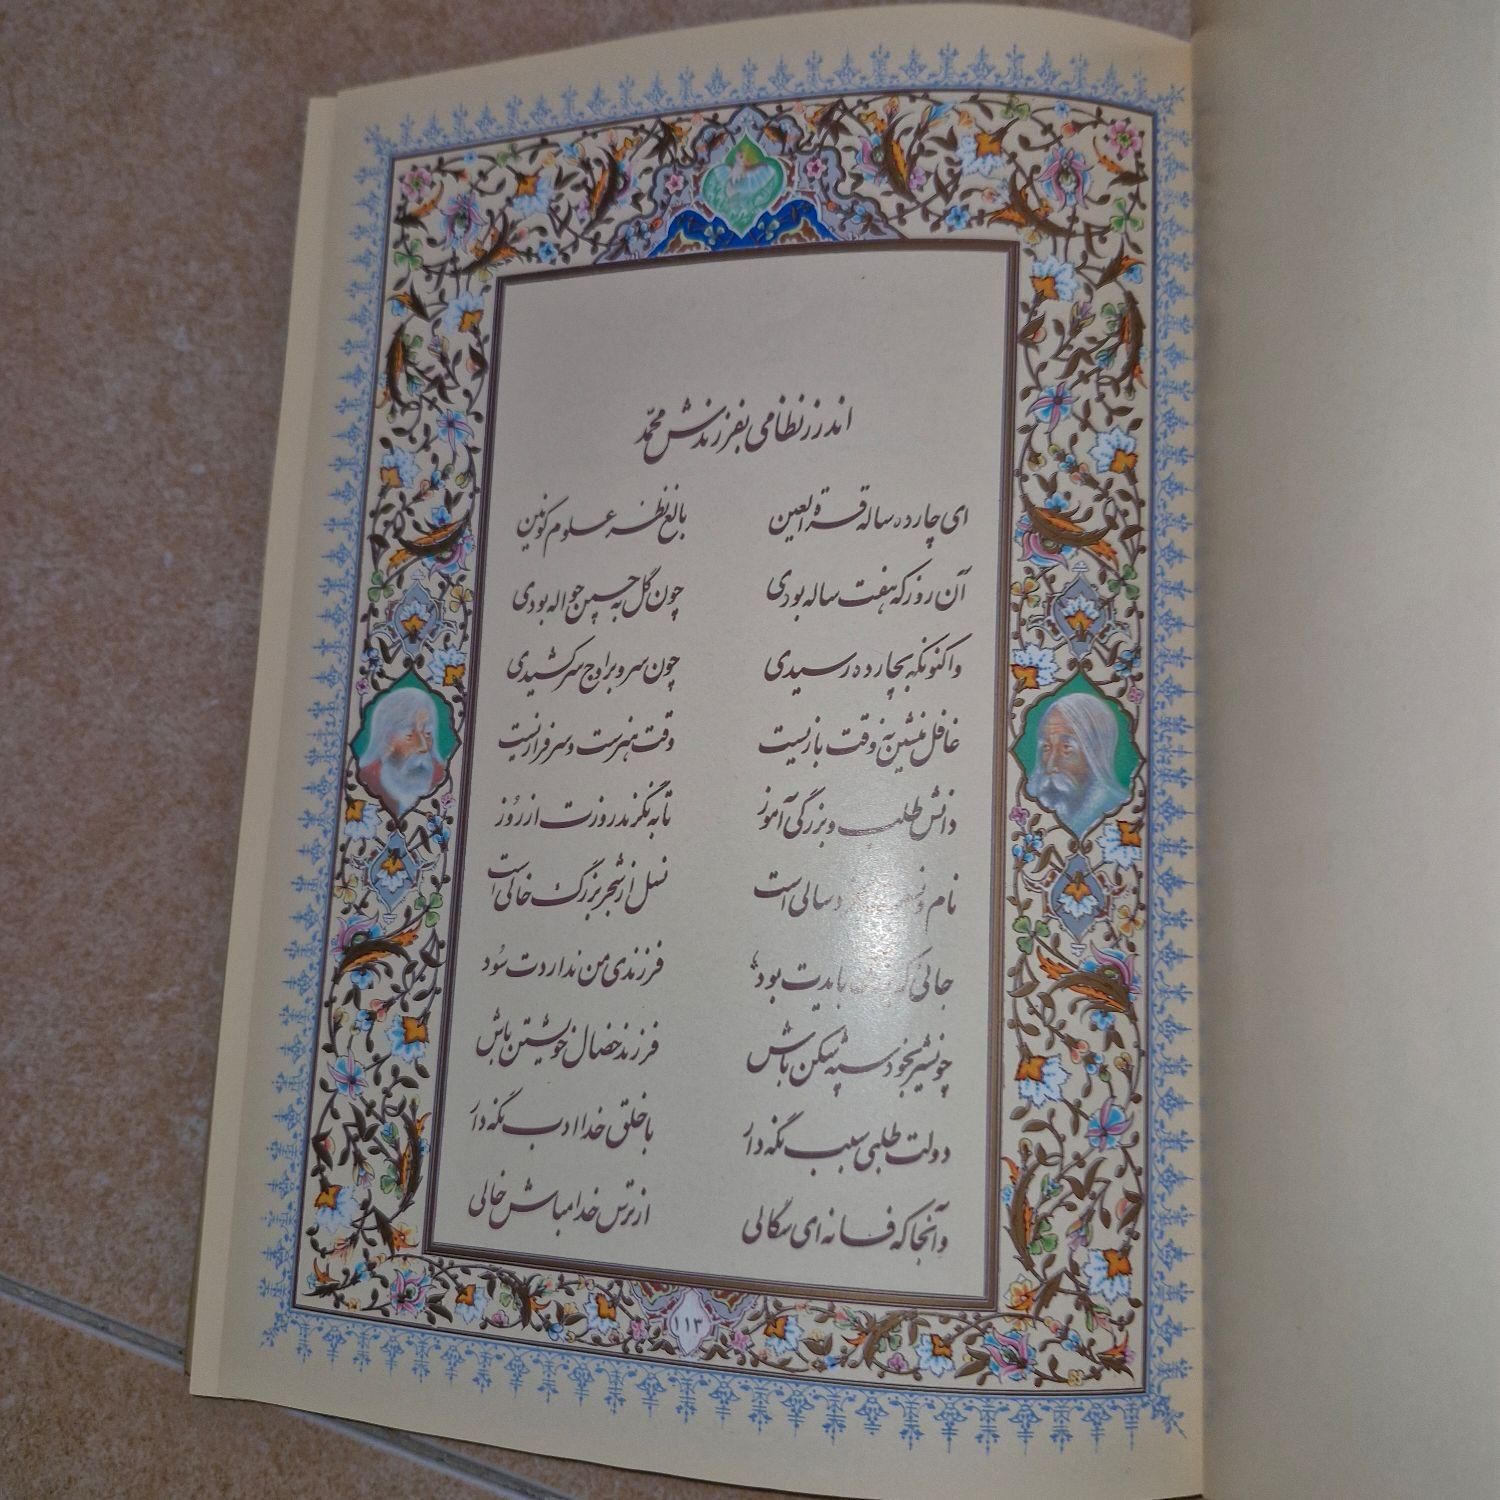 اندرز نظامی بفرزندش محمّد
ای چارده ساله قرة العین بالغ نظر علوم کونین
آن روز که هفت ساله بودی چون گل به چمن حواله بودی
واکنونکه بچارده رسیدی چون سرو بر اوج سرکشیدی
غافل منشین نه وقت بازیست وقت هنرست و سرفرازیست
دانش طلب و بزرگی آموز تا به نگرند روزت از رُوز
نام و سالی است نسل از شجر بزرگ خالی است
جائی که بایدت بود فرزندی من نداردت سُود
چونشیر بخود سپه شکن باش فرزند خصال خویشتن باش
دولت طلبی سبب نگه دار با خلق خدا ادب نگه دار
وآنجا که فسانه ای سگالی از ترس خدا مباش خالی
۱۱۳